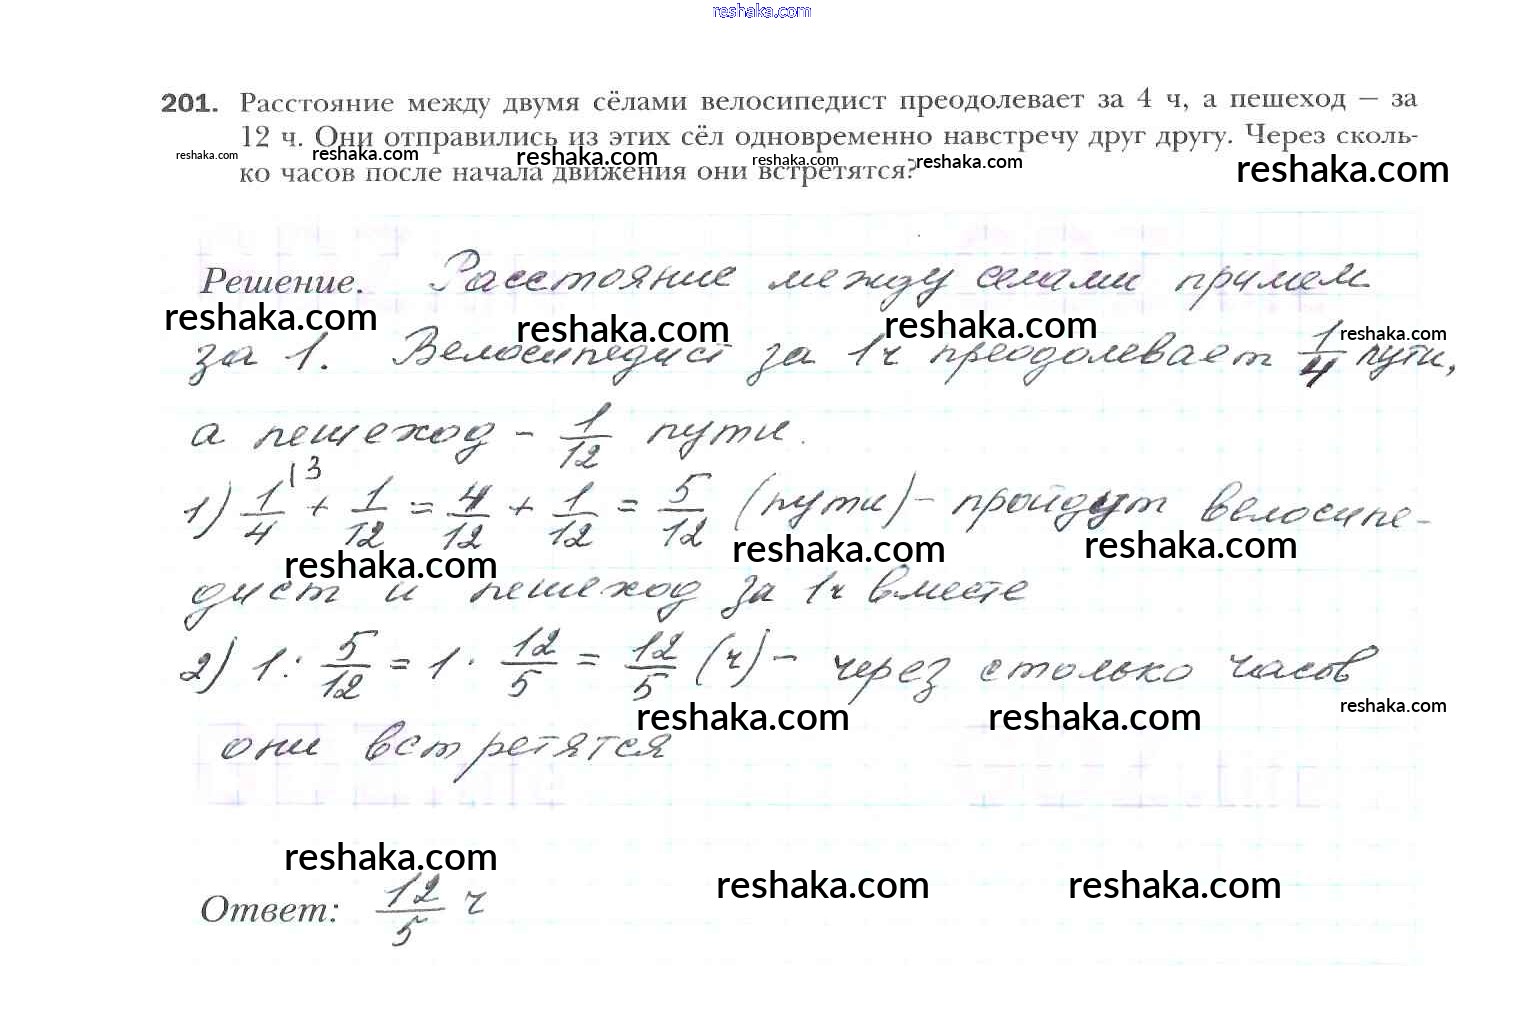 reshaka.com
201. Расстояние между двумя сёлами велосипедист преодолевает за 4 ч, а пешеход — за
12 ч. Они отправились из этих сёл одновременно навстречу друг другу. Через сколь-
reshaka.com reshaka.com reshaka.com reshaka.com reshaka.com reshaka.com
ко часов после начала движения они встретятся?
Решение. Расстояние между селами примем
reshaka.com reshaka.com reshaka.com reshaka.com
за 1. Велосипедист за 1ч преодолевает 1/4 пути,
а пешеход - 1/12 пути.
1) 1/4 (3 + 1/12 = 4/12 + 1/12 = 5/12 (пути) - пройдут велосипе-
reshaka.com reshaka.com reshaka.com
дист и пешеход за 1ч вместе
2) 1 : 5/12 = 1 · 12/5 = 12/5 (ч) - через столько часов
reshaka.com reshaka.com reshaka.com
они встретятся
reshaka.com reshaka.com reshaka.com
Ответ: 12/5 ч